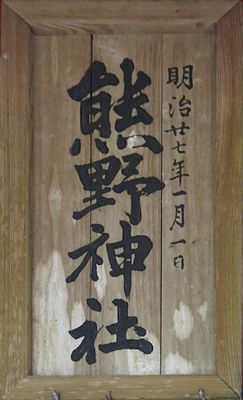 明治廿七年一月一日
熊野神社